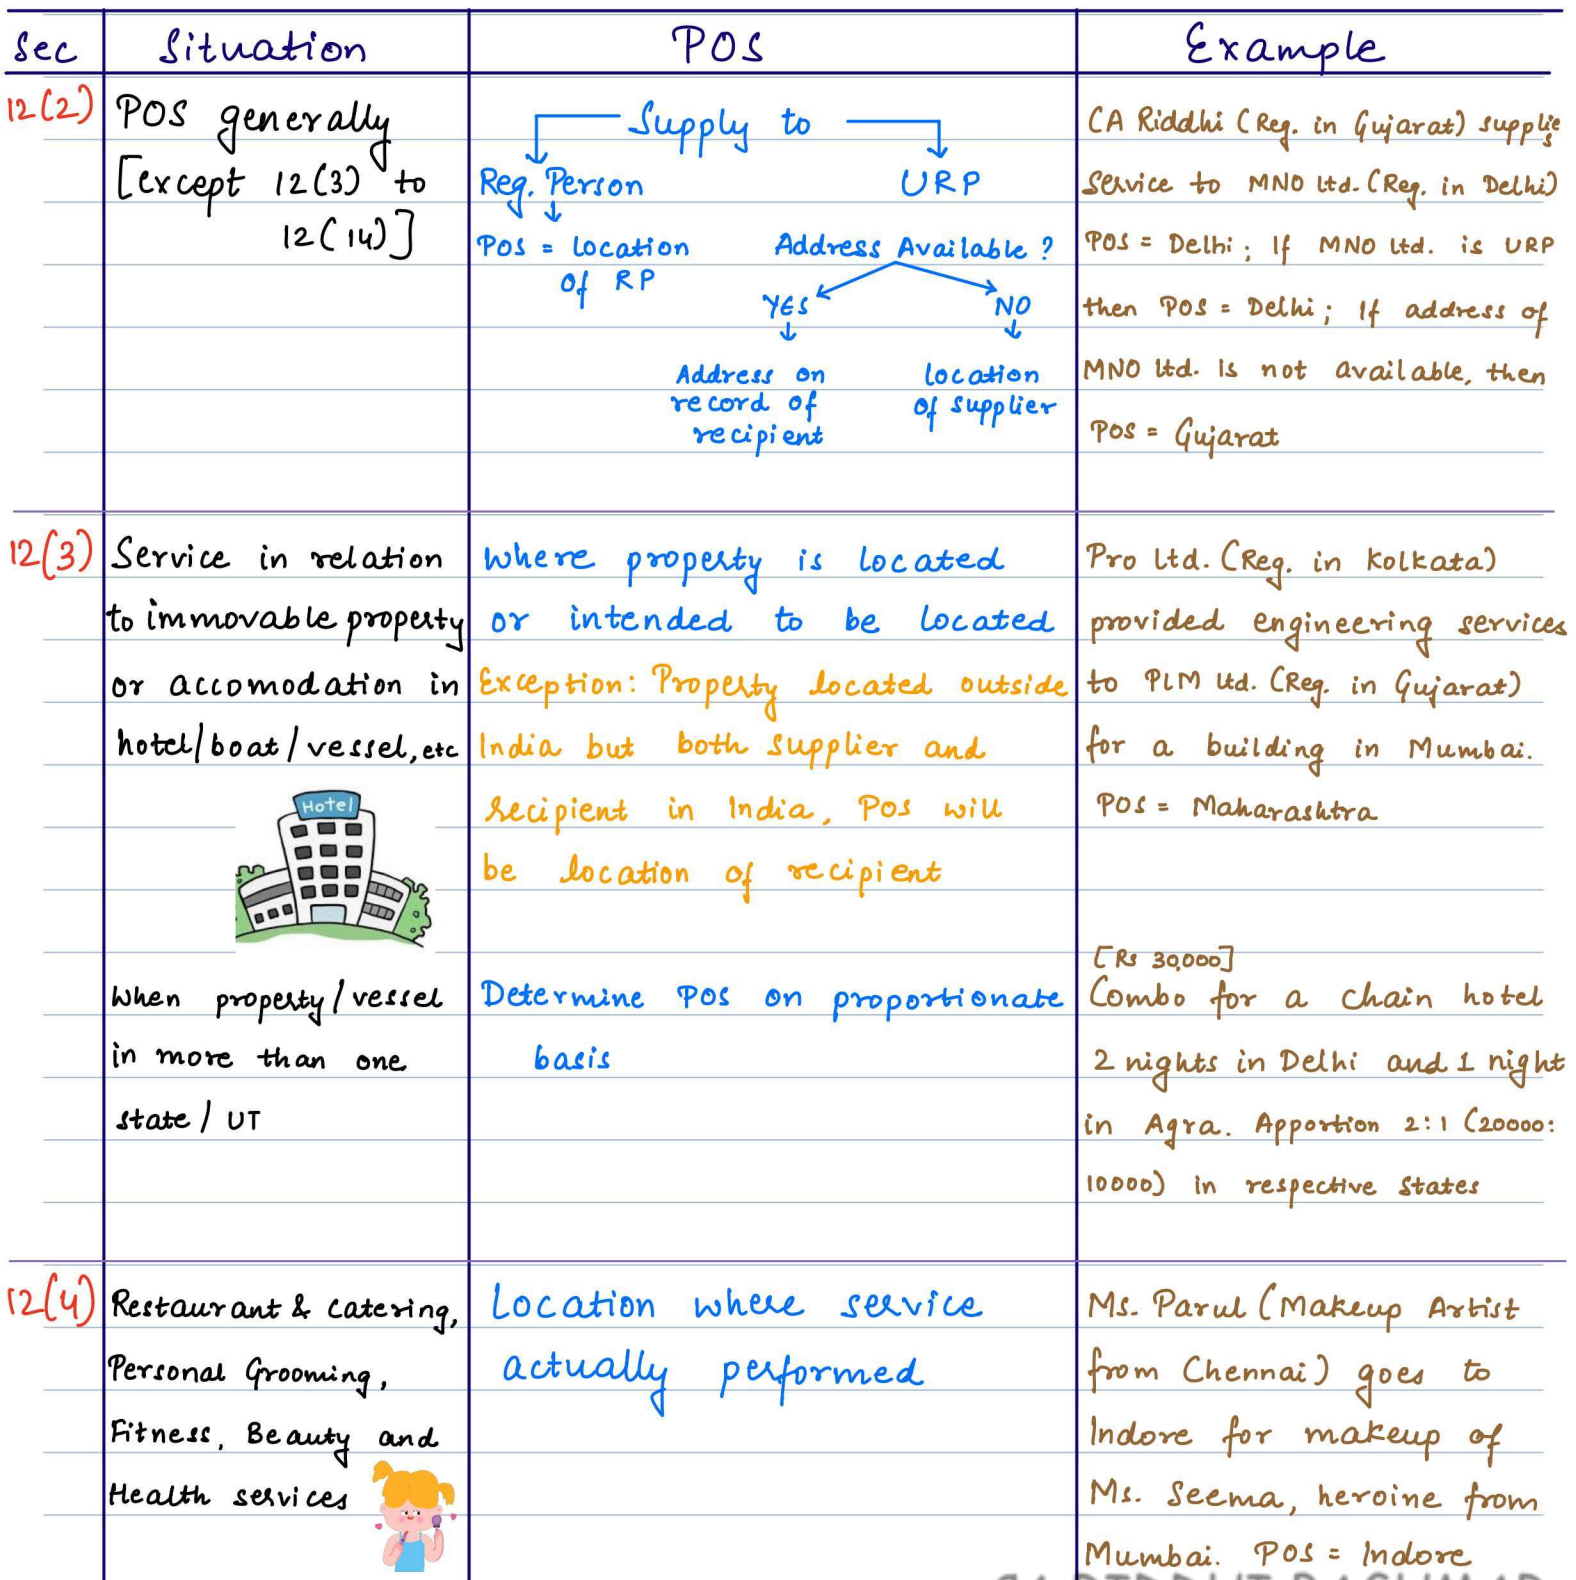 Sec Situation POS Example
12(2)
POS generally
[except 12(3) to
12(14)]
Supply to
Reg. Person URP
POS = Location
of RP
Address Available ?
YES NO
Address on
record of
recipient
location
of supplier
CA Riddhi (Reg. in Gujarat) supplies
service to MNO Ltd. (Reg. in Delhi)
POS = Delhi ; If MNO Ltd. is URP
then POS = Delhi ; If address of
MNO Ltd. is not available, then
POS = Gujarat
12(3)
Service in relation
to immovable property
or accomodation in
hotel/boat/vessel, etc
Hotel
where property is located
or intended to be located
Exception: Property located outside
India but both supplier and
recipient in India, POS will
be location of recipient
Pro Ltd. (Reg. in Kolkata)
provided engineering services
to PLM Ltd. (Reg. in Gujarat)
for a building in Mumbai.
POS = Maharashtra
When property/vessel
in more than one
state / UT
Determine POS on proportionate
basis
[Rs 30,000]
Combo for a chain hotel
2 nights in Delhi and 1 night
in Agra. Apportion 2:1 (20000:
10000) in respective states
12(4)
Restaurant & catering,
Personal Grooming,
Fitness, Beauty and
Health services
Location where service
actually performed
Ms. Parul (Makeup Artist
from Chennai) goes to
Indore for makeup of
Ms. Seema, heroine from
Mumbai. POS = Indore